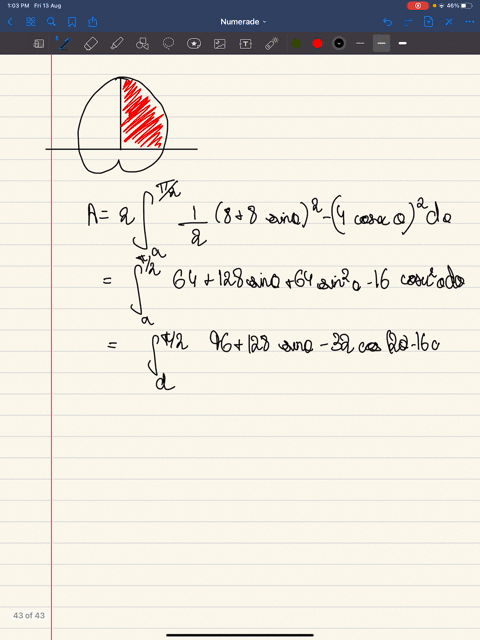 1:03 PM Fri 13 Aug
46%
Numerade
A = 2 ∫_a^{π/2} 1/2 (8+8 sinθ)^2 - (4 cosec θ)^2 dθ
= ∫_a^{π/2} 64 + 128 sinθ + 64 sin^2 θ - 16 cosec^2 θ dθ
= ∫_d^{π/2} 96 + 128 sinθ - 32 cos (2θ - 16 c
43 of 43